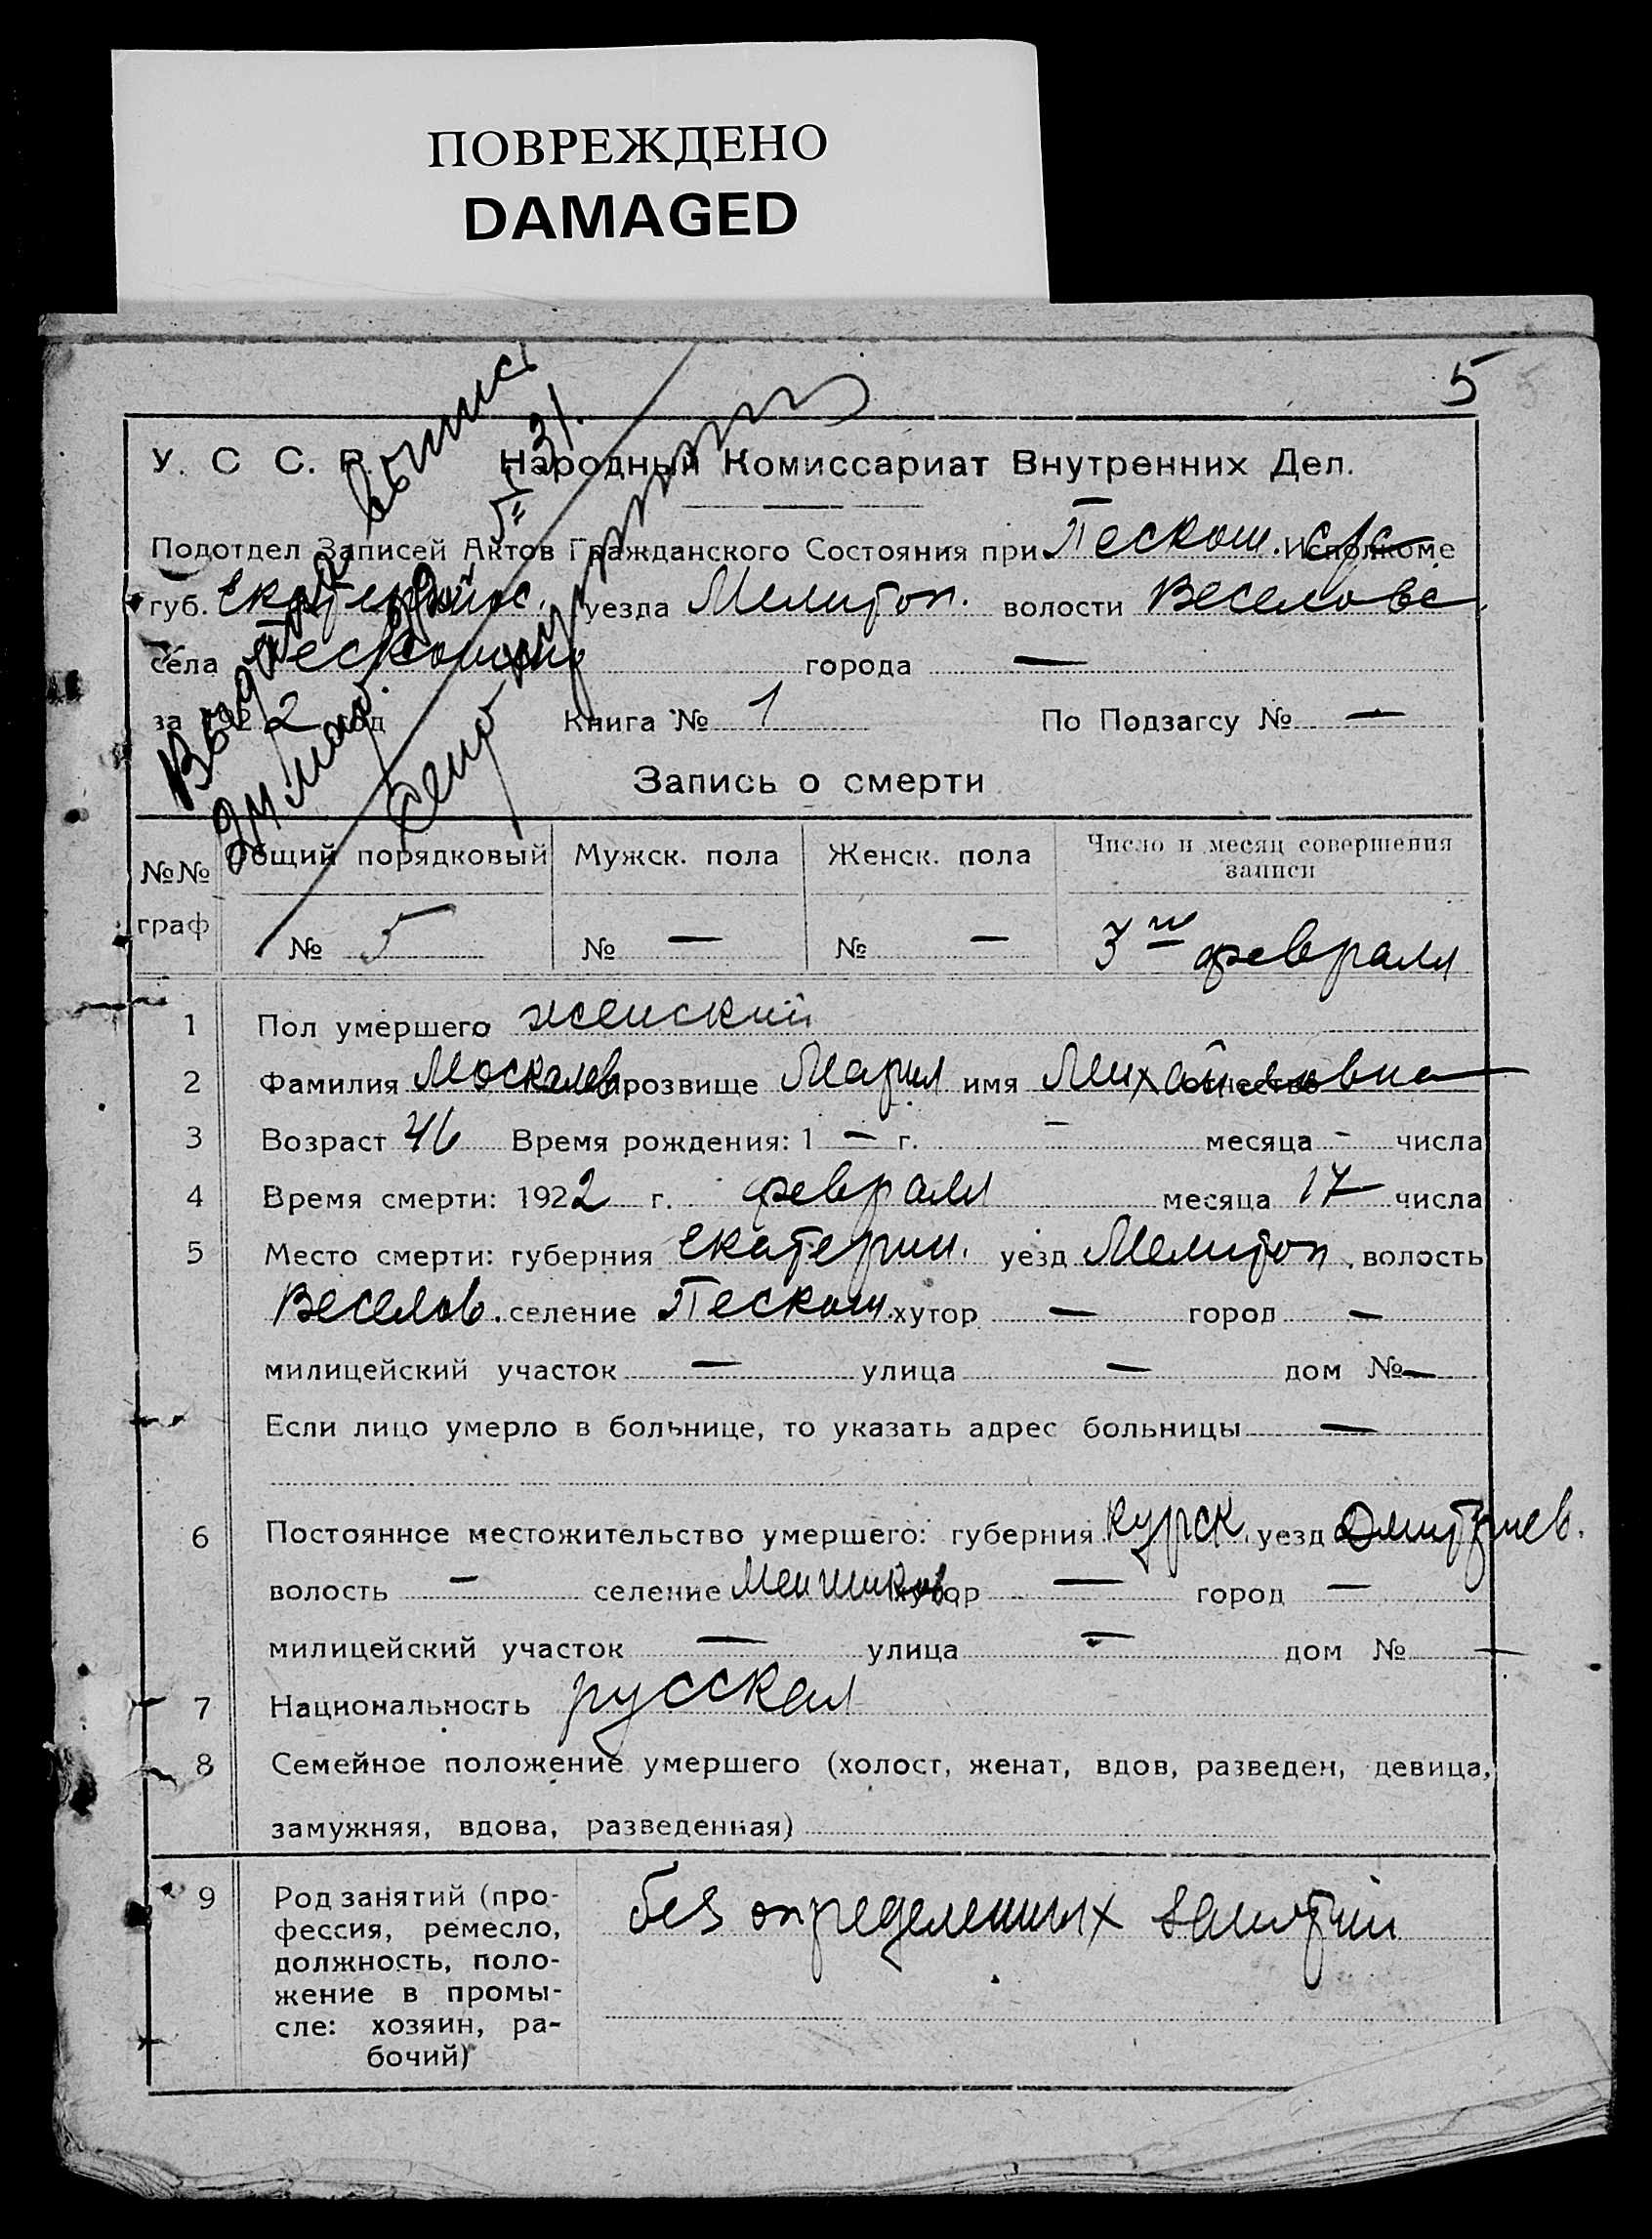 ПОВРЕЖДЕНО
DAMAGED
5
У. С. С. Р. Народный Комиссариат Внутренних Дел.
Подотдел Записей Актов Гражданского Состояния при Пескош. Исполкоме
губ. Екатерин. уезда Мелитоп. волости Веселовс.
села города —
за 1922 год Книга № 1 По Подзагсу № —
Запись о смерти
№№ граф
Общий порядковый Мужск. пола Женск. пола Число и месяц совершения записи
№ 5 № — № — 3го февраля
1 Пол умершего женский
2 Фамилия Москалев прозвище Мария имя Михайловна отчество
3 Возраст 46 Время рождения: 1 — г. — месяца - числа
4 Время смерти: 1922 г. февраля месяца 17 числа
5 Место смерти: губерния Екатерин. уезд Мелитоп. волость
Веселов. селение Пескош. хутор — город —
милицейский участок — улица — дом № —
Если лицо умерло в больнице, то указать адрес больницы —
6 Постоянное местожительство умершего: губерния Курск. уезд Дмитриев.
волость — селение Меншиков. хутор — город —
милицейский участок — улица — дом № —
7 Национальность русская
8 Семейное положение умершего (холост, женат, вдов, разведен, девица,
замужняя, вдова, разведенная)
9 Род занятий (про-
фессия, ремесло,
должность, поло-
жение в промы-
сле: хозяин, ра-
бочий)
без определенных занятий